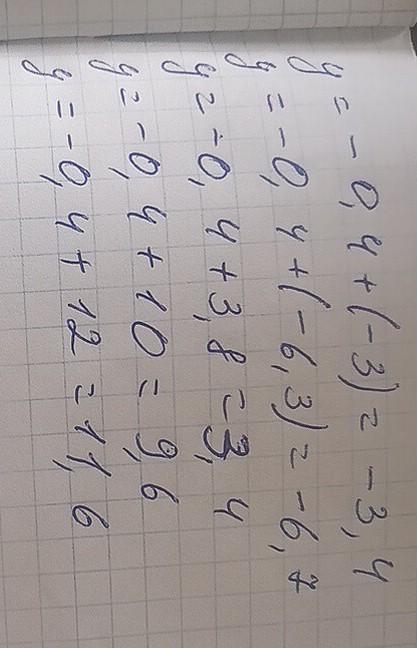 y = -0,4 + (-3) = -3,4
y = -0,4 + (-6,3) = -6,7
y = -0,4 + 3,8 = 3,4
y = -0,4 + 10 = 9,6
y = -0,4 + 12 = 11,6